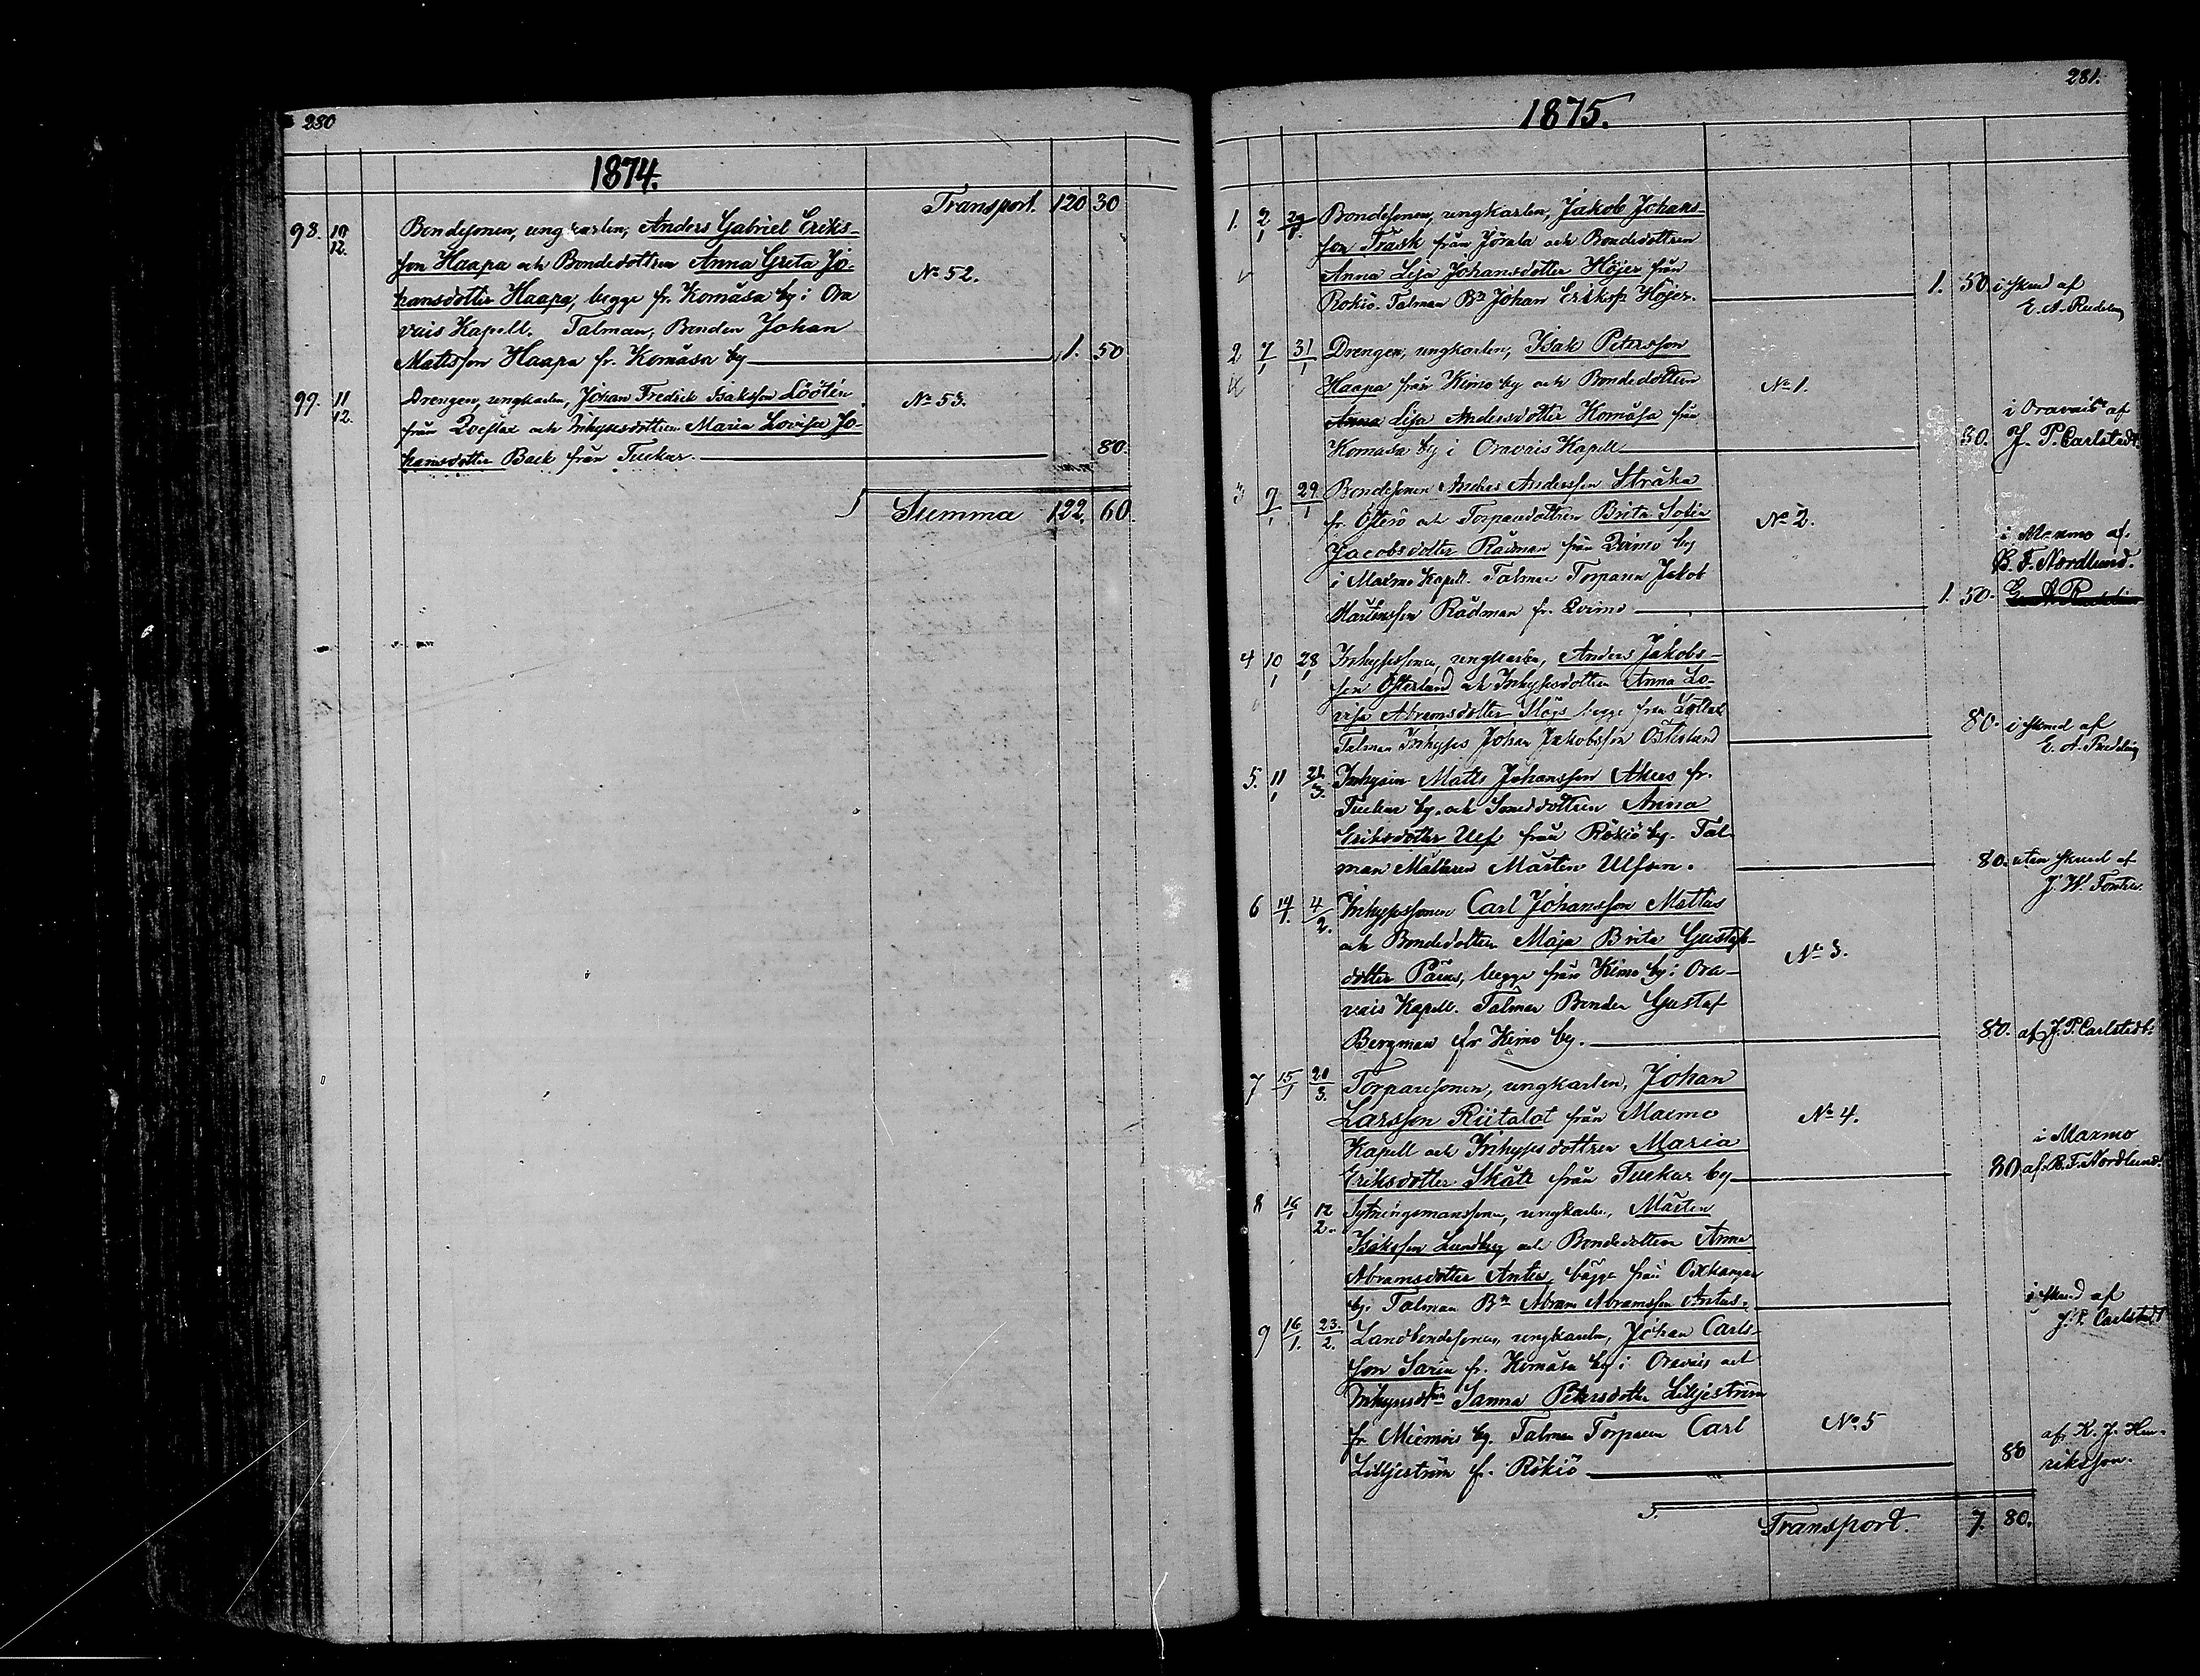 280
1874.
Transport. 120 30
98. 10/12. Bondesonen, ungkarlen, Anders Gabriel Eriks-
son Haapa och Bondedottren Anna Greta Jo-
hansdotter Haapa, begge fr. Komåsa by i Ora
vais Kapell. Talman, Bonden Johan
No 52.
Mattsson Haapa fr. Komåsa by 1. 50
99. 11/12. Drengen, ungkarlen, Johan Fredrik Isaksson Löötin
från Qveflax och Inhysesdottren Maria Lovisa Jo-
hansdotter Back från Tuckur. 80.
No 53.
Summa 122. 60.
281.
1875.
1. 2/1 Bondesonen, ungkarlen, Jakob Johans-
son Träsk från Jörala och Bondedottren
Anna Lisa Johansdotter Höjer från
Rökiö. Talman Bn Johan Eriksson Höjer. 1. 50 i sknd af
E. A. Rudelin
2 7/1 31/1 Drengen, ungkarlen, Isak Petersson
Haapa från Kimo by och Bondedottren
Anna Lisa Andersdotter Komåsa från
Komåsa by i Oravais Kapell 80.
No 1.
i Oravais af
J. P. Carlstedt
3 9/1 29/1 Bondesonen Anders Andersson Stråka
fr. Österö och Torparedottren Brita Sofia
Jacobsdotter Rådman från Qvimo by
i Maxmo Kapell. Talman Torparen Jakob
Mårtensson Rådman fr. Qvimo 1. 50.
No 2.
i Maxmo af
B. F. Nordlund.
4 10/1 28/1 Inhysessonen, ungkarlen, Anders Jakobs-
son Österlund och Inhysesdottren Anna Lo-
visa Abramsdotter begge från
Talman Inhyses Johan Jakobsson Österlund 80. i sknd af
E. A. Rudelin
5. 11/1 21/3. Inhysin Matts Johansson Åkers fr.
Tuckur by och Smeddottren Anna
Eriksdotter Ulf från Rökiö by. Tal-
man Målaren Mårten Ulfsen. 80. utan sknd af
J. W. Fontell
6 14/1. 4/2. Inhysessonen Carl Johansson Mattus
och Bondedottren Maja Brita Gustafs-
dotter Paius, begge från Kimo by i Ora-
vais Kapell. Talman Bonden Gustaf
Bergman fr Kimo by. 80. af J. P. Carlstedt.
No 3.
7 15/1 20/3. Torparesonen, ungkarlen, Johan
Larsson Riitalot från Maxmo
Kapell och Inhysesdottren Maria
Eriksdotter Skåtr från Tuckur by 80
No 4.
i Maxmo
af B. F. Nordlund.
8 16/1 12/2. Sytningsmanssonen, ungkarlen, Mårten
Isaksson Lundberg och Bondedottren Anna
Abramsdotter Antus, bägge från Oxkangar
by. Talman Bn Abram Abramsson Antus.
i sknd af
J. P. Carlstedt
9 16/1. 23./2. Landbondesonen, ungkarlen, Johan Carls-
son Sarin fr. Komåsa by i Oravais och
Inhysesdtn Sanna Petersdotter Liljeström
fr Miemois by. Talman Torparen Carl
Liljeström fr. Rökiö 80
No 5
af K. J. Hen-
riksson.
Transport. 7. 80.